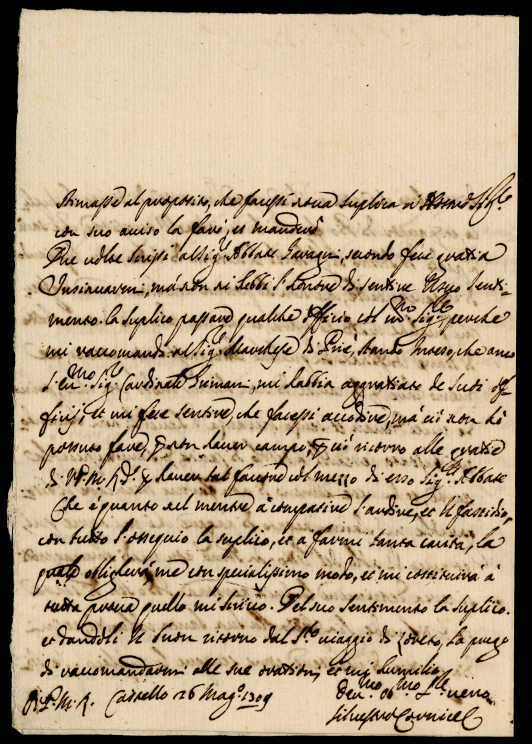 Stimasse al proposito, che facessi nova suplica
con suo aviso la farò, et manderò
Due volte scrissi al Sig.r Abbate Gavagni, secondo fece gratia
Insinuarmi, mà non ne hebbi l'honore di sentire il suo senti-
mento. la suplico passare qualche officio col Sig.r perche
mi raccomandi al Sig.r Marchese di Priè, stando Inteso, che anco
l'em.mo Sig.r Cardinale Grimani, mi habbia aggratiato de suoi of-
ficij, et mi fece sentire, che facessi accudire, mà ciò non hò
possuto fare, p non haver campo, p ciò ricorro alle gratie
di p haver tal favore col mezzo di esso Sig.r Abbate
Che è quanto nel mentre à compatire l'ardire, et il fastidio,
con tutto l'ossequio la suplico, et a farmi tanta carità, la
quale obligherà me con specialissimo modo, et mi costituirà à
tutta prova quello mi scrivo. Del suo sentimento la suplico.
et dandoli il buon ritorno dal S.to viaggio di Loreto, la prego
di raccomandarmi alle sue orationi, et mi humilio
Castello 26 Mag.o 1709
Dev.mo Ob.mo
Silvestro